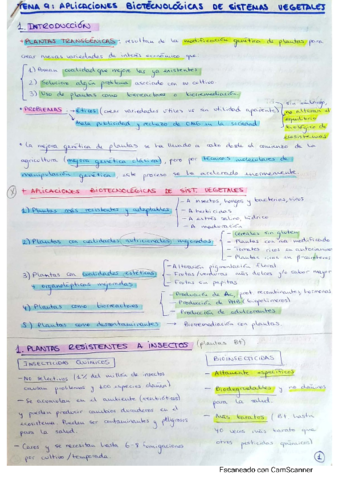 TEMA 9: APLICACIONES BIOTECNOLÓGICAS DE SISTEMAS VEGETALES
1. INTRODUCCIÓN
· PLANTAS TRANSGÉNICAS: resultan de la modificación genética de plantas para
crear nuevas variedades de interés económico que:
1) Posean cualidad que mejora las ya existentes
2) Solucione algún problema asociado con su cultivo
3) Uso de plantas como bioreactores o bioremediación
· PROBLEMAS Éticos (crear variedades útiles no sin utilidad aparente)
Mala publicidad y rechazo de OMG en la sociedad
Sin embargo,
no alteran el
equilibrio
biológico de
ecosistemas
· La mejora genética de plantas se ha llevado a cabo desde el comienzo de la
agricultura (mejora genética clásica), pero por técnicas moleculares de
manipulación genética este proceso se ha acelerado enormemente
APLICACIONES BIOTECNOLÓGICAS DE SIST. VEGETALES
1) Plantas más resistentes y adaptables
- A insectos, hongos y bacterias, virus
- A herbicidas
- A estrés salino, hídrico
- A maduración
2) Plantas con cualidades nutricionales mejoradas
- Cereales sin gluten
- Plantas con modificado
- Tomates ricos en
- Plantas ricas en
3) Plantas con cualidades estéticas
y organolépticas mejoradas
- Alteración pigmentación floral
- Frutas/verduras más dulces y/o sabor mejor
- Frutos sin pepitas
4) Plantas como bioreactores
- Producción de Ac, prot. recombinantes, hormonas
- Producción de PHB (biopolímeros)
- Producción de edulcorantes
5) Plantas como descontaminantes - Bioremediación con plantas
1. PLANTAS RESISTENTES A INSECTOS (plantas Bt)
INSECTICIDAS QUÍMICOS
- No selectivos (de millón de insectos
causan problemas y 400 especies dañan)
- Se acumulan en el ambiente (residuos)
y pueden producir cambios duraderos en el
ecosistema. Pueden ser contaminantes y peligrosos
para la salud.
- Caros y se necesitan hasta 6-7 fumigaciones
por cultivo/temporada.
BIOINSECTICIDAS
- Altamente específicos
- Biodegradables y no dañinos
para la salud.
- Más baratos (Bt hasta
40 veces más barato que
otros pesticidas químicos)
1
Escaneado con CamScanner